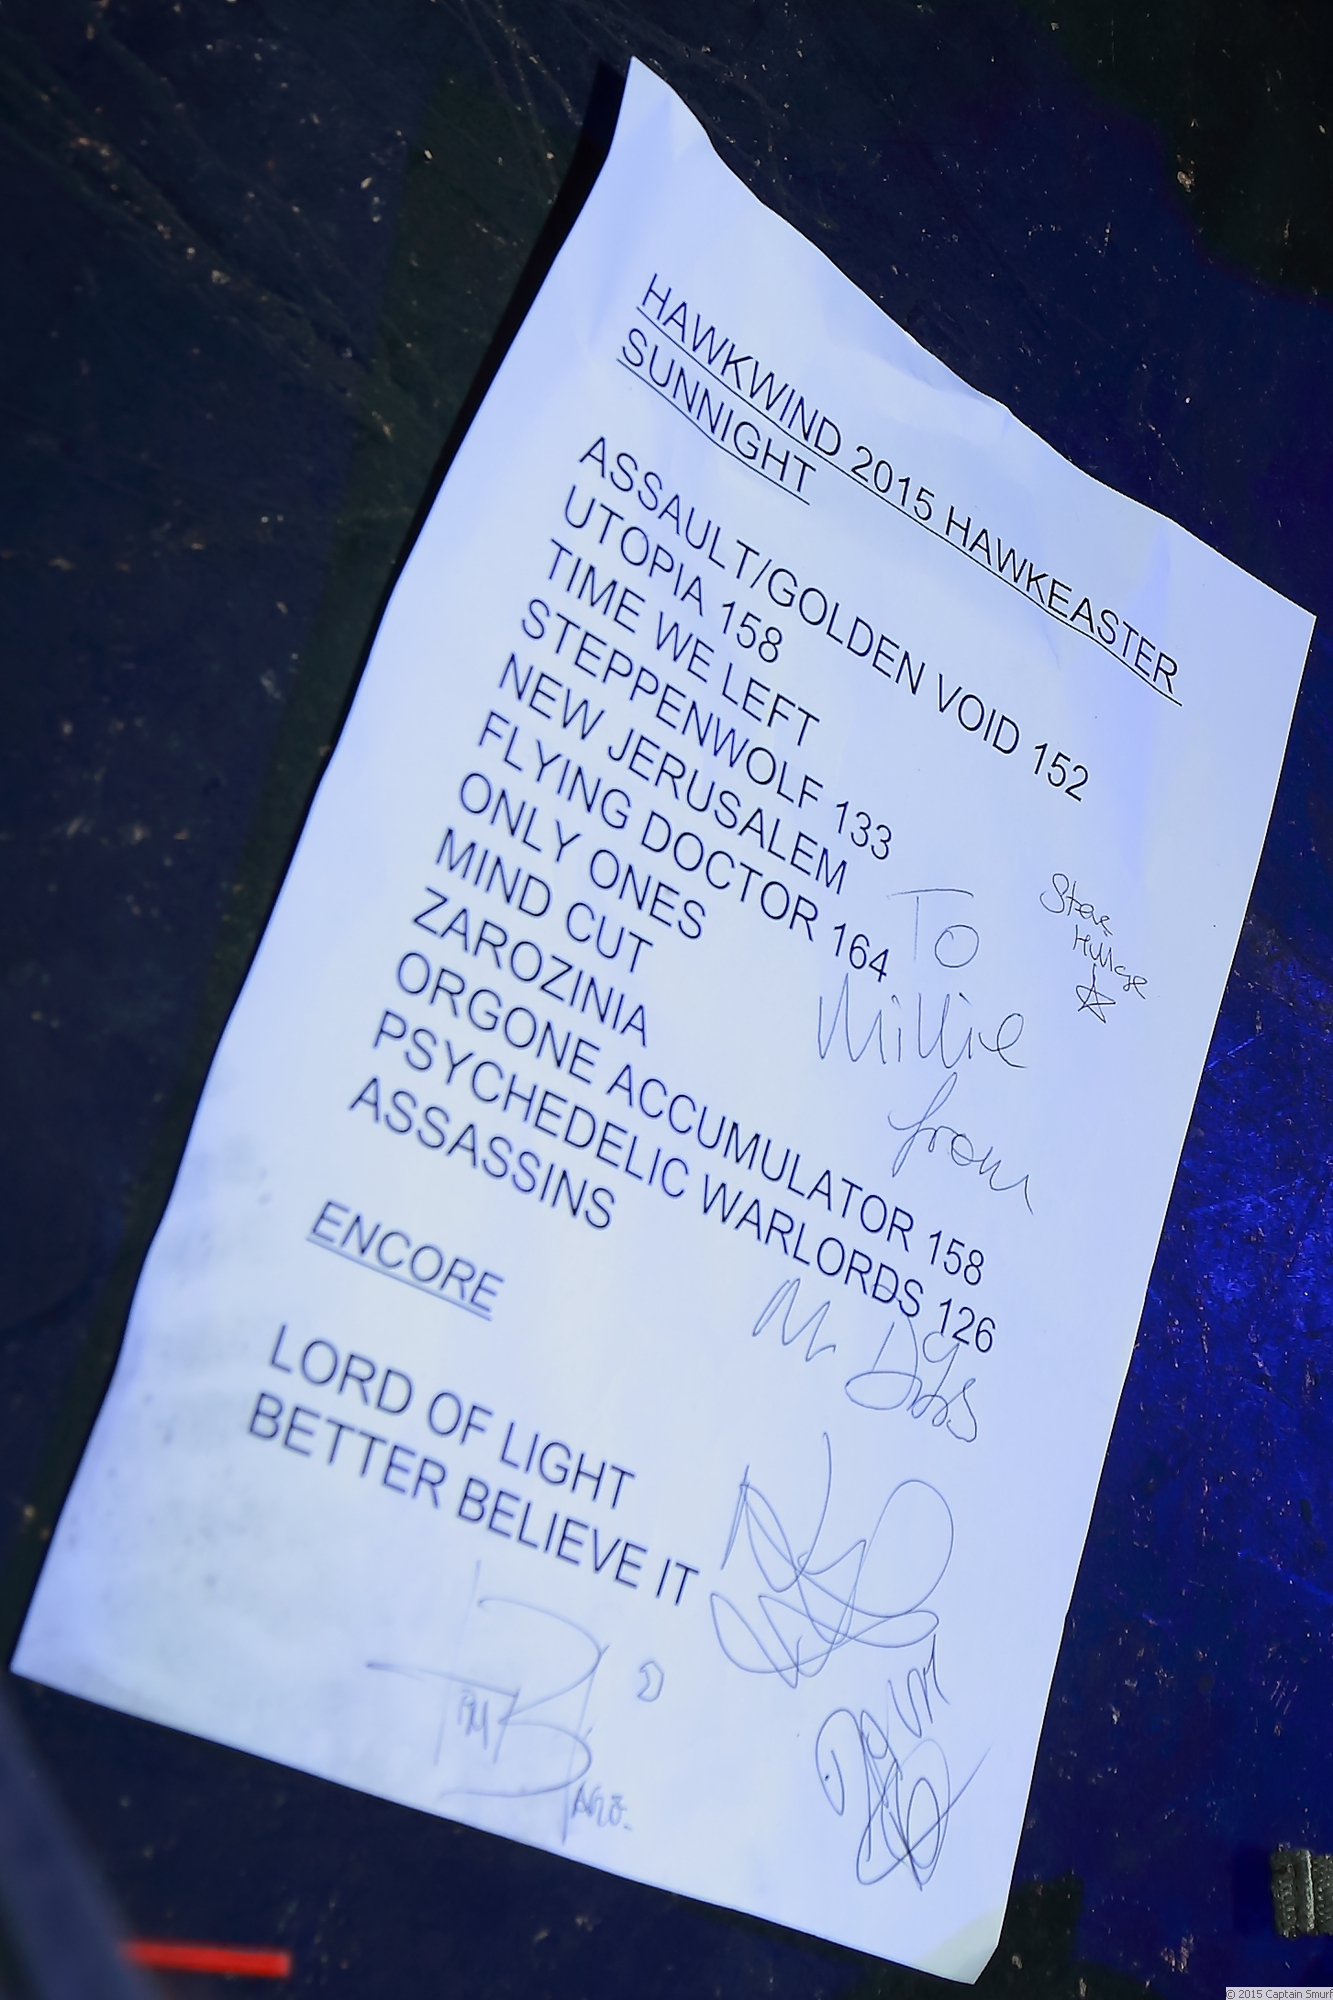 HAWKWIND 2015 HAWKEASTER
SUNNIGHT
ASSAULT/GOLDEN VOID 152
UTOPIA 158
TIME WE LEFT
STEPPENWOLF 133
NEW JERUSALEM
FLYING DOCTOR 164
ONLY ONES
MIND CUT
ZAROZINIA
ORGONE ACCUMULATOR 158
PSYCHEDELIC WARLORDS 126
ASSASSINS
ENCORE
LORD OF LIGHT
BETTER BELIEVE IT
To
Millie
from
Steve
Mr Dibs
© 2015 Captain Smurf